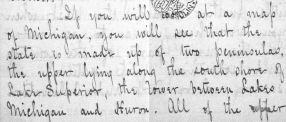 If you will look at a map
of Michigan, you will see that the
state is made up of two peninsulas,
the upper lying along the south shore of
Lake Superior, the lower between Lakes
Michigan and Huron. All of the upper